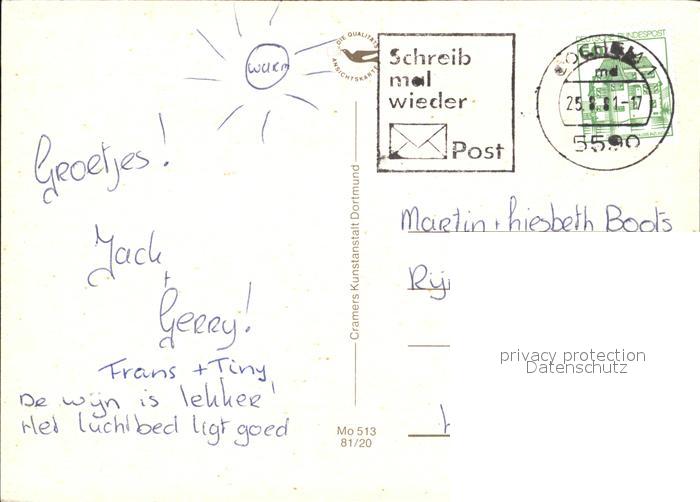 warm
DIE QUALITÄTS
ANSICHTSKARTE
Schreib
mal
wieder
Post
DEUTSCHE BUNDESPOST
COCHEM
md
25.8.81-17
5590
Groetjes!
Jack
+
Gerry!
Frans + Tiny
De wijn is lekker!
Het luchtbed ligt goed
Cramers Kunstanstalt Dortmund
Mo 513
81/20
Martin + Liesbeth Boots
Rij
privacy protection
Datenschutz